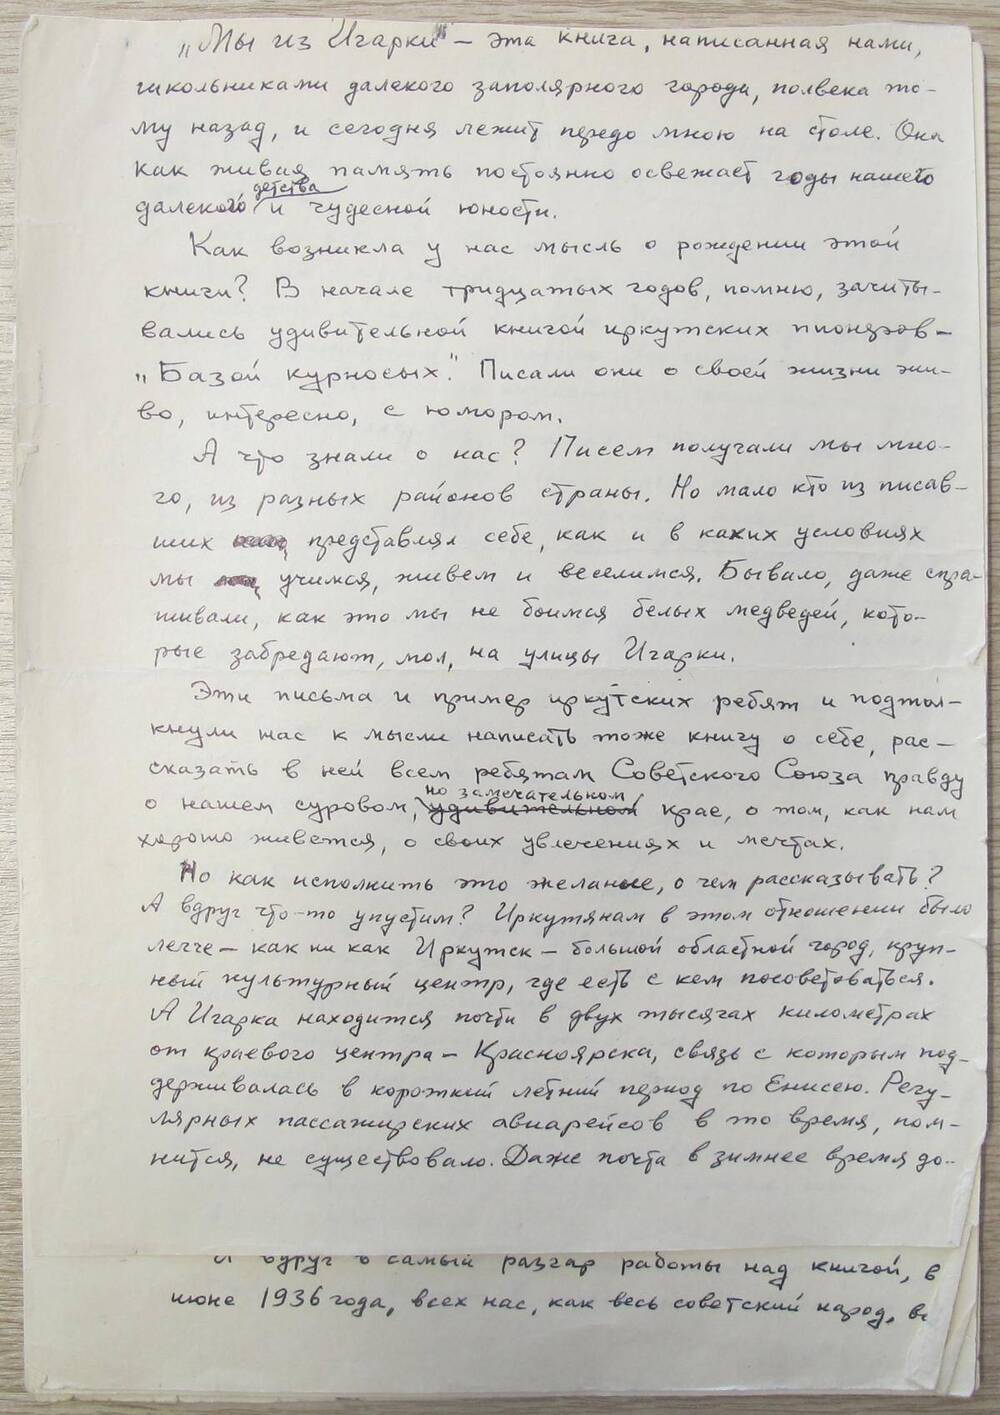 „Мы из Игарки" – эта книга, написанная нами,
школьниками далекого заполярного города, полвека то-
му назад, и сегодня лежит передо мною на столе. Она
как живая память постоянно освежает годы нашего
детства
далекого и чудесной юности.
Как возникла у нас мысль о рождении этой
книги? В начале тридцатых годов, помню, зачиты-
вались удивительной книгой иркутских пионеров –
„Базой курносых". Писали они о своей жизни жи-
во, интересно, с юмором.
А что знали о нас? Писем получали мы мно-
го, из разных районов страны. Но мало кто из писав-
ших представлял себе, как и в каких условиях
мы учимся, живем и веселимся. Бывало, даже спра-
шивали, как это мы не боимся белых медведей, кото-
рые забредают, мол, на улицы Игарки.
Эти письма и пример иркутских ребят и подтол-
кнули нас к мысли написать тоже книгу о себе, рас-
сказать в ней всем ребятам Советского Союза правду
но замечательном
о нашем суровом, удивительном крае, о том, как нам
хорошо живется, о своих увлечениях и мечтах.
Но как исполнить это желание, о чем рассказывать?
А вдруг что-то упустим? Иркутянам в этом отношении было
легче – как ни как Иркутск – большой областной город, круп-
ный культурный центр, где есть с кем посоветоваться.
А Игарка находится почти в двух тысячах километрах
от краевого центра – Красноярска, связь с которым под-
держивалась в короткий летний период по Енисею. Регу-
лярных пассажирских авиарейсов в то время, пом-
нится, не существовало. Даже почта в зимнее время до-
А вдруг в самый разгар работы над книгой, в
июне 1936 года, всех нас, как весь советский народ,